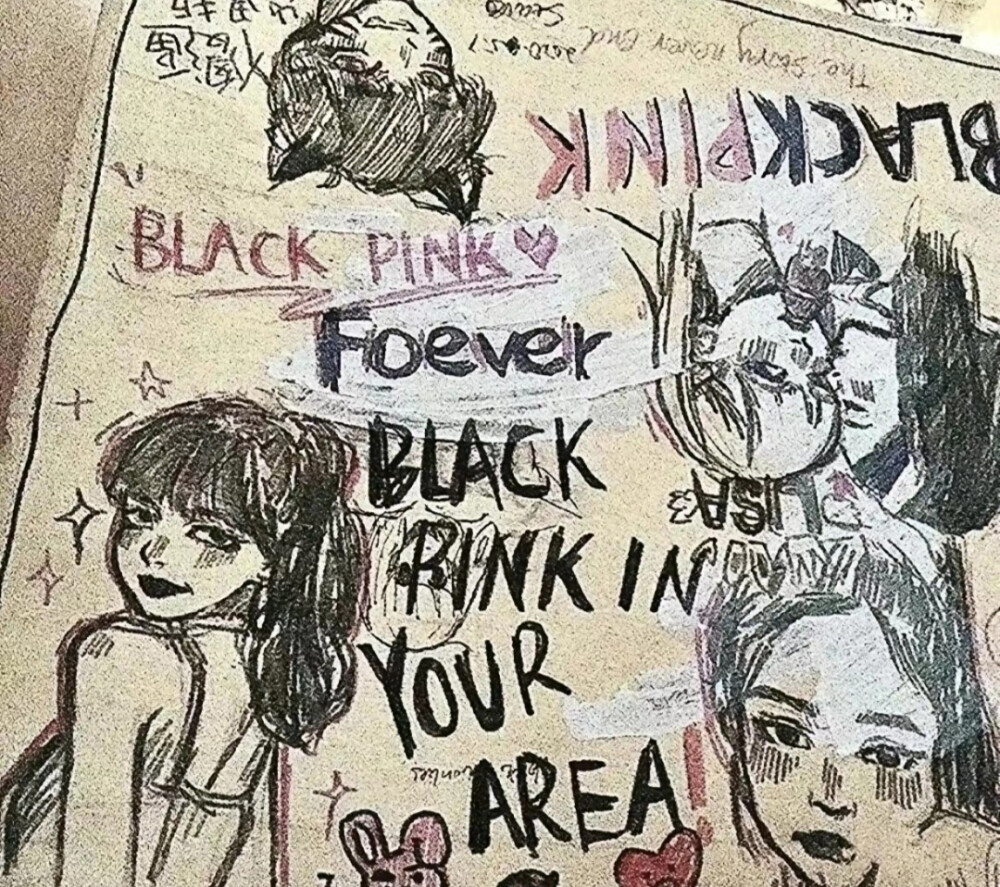 The story never end
2020.05.1
BLACKPINK
BLACK PINK
Foever
BLACK
PINK IN
YOUR
AREA!
LISA